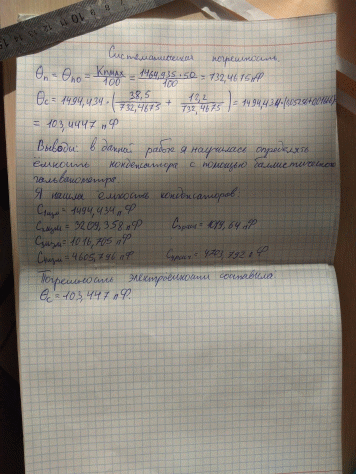 Систематическая погрешность.
Θп = Θпо = Kпmax/100 = 1464,935·50/100 = 732,4675 пФ
Θc = 1494,434·(38,5/732,4675 + 13,2/732,4675) = 1494,434·
= 103,4447 пФ
Вывод: в данной работе я научилась определять
ёмкость конденсатора с помощью баллистического
гальванометра.
Я нашла ёмкость конденсаторов
C = 1494,434 пФ
C = 3209,358 пФ
C = 1016,705 пФ
C = 4605,796 пФ C = 4703,792 пФ
Погрешность электроемкости составила
Θc = 103,447 пФ.